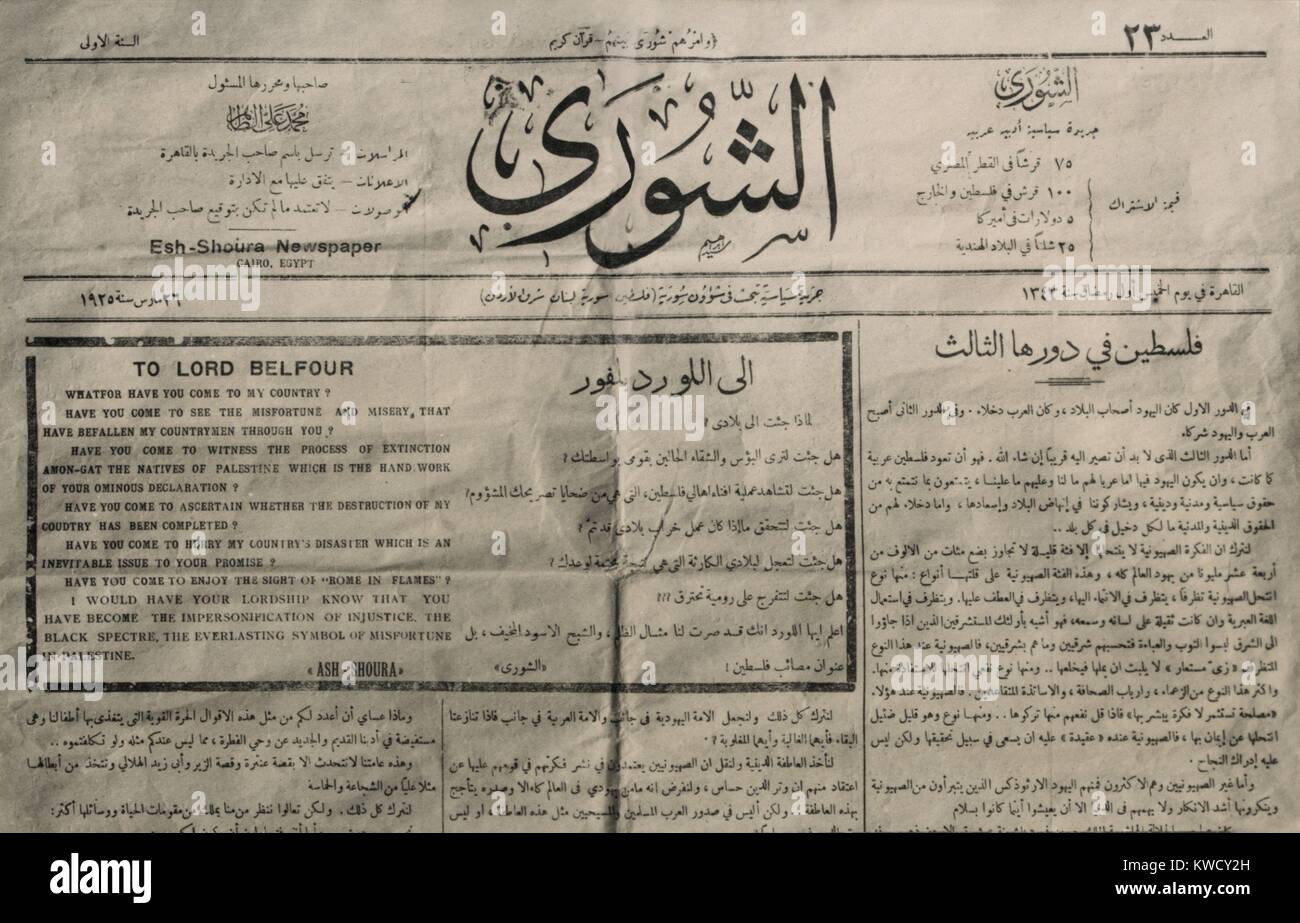 العـــدد ٢٣
﴿وامرهم شورى بينهم – قرآن كريم
السنة الاولى
الشورى
جريدة سياسية أدبية عربية
قيمة الاشتراك
٧٥ قرشاً في القطر المصري
١٠٠ قرش في فلسطين والخارج
٥ دولارات في أميركا
٢٥ شلناً في البلاد الهندية
الشورى
صاحبها ومحررها المسئول
محمد علي الطاهر
المراسلات – ترسل باسم صاحب الجريدة بالقاهرة
الاعلانات – يتفق عليها مع الادارة
الوصولات – لا تعتمد مالم تكن بتوقيع صاحب الجريدة
Esh-Shoura Newspaper
CAIRO, EGYPT
القاهرة في يوم الخميس اول رمضان سنة ١٣٤٣
جريدة سياسية تبحث في شؤون سورية (فلسطين سورية لبنان شرق الاردن)
٢٦ مارس سنة ١٩٢٥
فلسطين في دورها الثالث
في الدور الاول كان اليهود أصحاب البلاد، وكان العرب دخلاء . وفي الدور الثاني أصبح
العرب واليهود شركاء.
أما الدور الثالث الذي لا بد أن تصير اليه قريباً إن شاء الله . فهو أن تعود فلسطين عربية
كما كانت، وان يكون اليهود فيها اما عربا لهم ما لنا وعليهم ما علينا، يتمتعون بما نتمتع به من
حقوق سياسية ومدنية ودينية، ويشاركوننا في إنهاض البلاد وإسعادها، واما دخلاء لهم من
الحقوق الدينية والمدنية ما لكل دخيل في كل بلد ..
لنترك ان الفكرة الصهيونية لا ينتحلها إلا فئة قليلة لا تتجاوز بضع مئات من الالوف من
أربعة عشر مليونا من يهود العالم كله، وهذه الفئة الصهيونية على قلتهـا أنواع : منها نوع
انتحل الصهيونية تظرفاً، يتظرف في الانتماء اليها، ويتظرف في العطف عليها. ويتظرف في استعمال
اللغة العبرية وان كانت ثقيلة على لسانه وسمعه، فهو أشبه بأولئك المستشرقين الذين اذا جاؤوا
الى الشرق لبسوا الثوب والعباءة فتحسبهم شرقيين وما هم بشرقيين، فالصهيونية عند هذا النوع
المتظرف «زي مستعار» لا يلبث ان يملها فيخلعها .. ومنها نوع نفعي انتحلها للاستفادة منها.
واكثر هذا النوع من الزعماء، وارباب الصحافة، والاساتذة المتقاعدين . فالصهيونية عند هؤلاء
«مصلحة تستثمر لا فكرة يبشر بها» فاذا قل نفعهم منها تركوها . . ومنها نوع وهو قليل ضئيل
انتحلها عن إيمان بها، فالصهيونية عنده «عقيدة» عليه ان يسعى في سبيل تحقيقها ولكن ليس
عليه إدراك النجاح .
وأما غير الصهيونيين وهم الاكثرون فمنهم اليهود الارثوذكس الذين يتبرأون من الصهيونية
وينكرونها أشد الانكار ولا يهمهم في الدنيا الا أن يعيشوا أينما كانوا بسلام
الى اللورد بلفور
لماذا جئت الى بلادي ؟
هل جئت لترى البؤس والشقاء الحالين بقومي بواسطتك ؟
هل جئت لتشاهد عملية افناء اهالي فلسطين، التي هي من ضحايا تصريحك المشؤوم؟
هل جئت لتتحقق ما إذا كان عمل خراب بلادي قد تم ؟
هل جئت لتعجل لبلادي الكارثة التي هي نتيجة محتمة لوعدك ؟
هل جئت لتتفرج على رومية تحترق ؟؟؟
اعلم ايها اللورد انك قد صرت لنا مثال الظلم، والشبح الاسود المخيف، بل
عنوان مصائب فلسطين ! «الشورى»
TO LORD BELFOUR
WHATFOR HAVE YOU COME TO MY COUNTRY ?
HAVE YOU COME TO SEE THE MISFORTUNE AND MISERY, THAT
HAVE BEFALLEN MY COUNTRYMEN THROUGH YOU ?
HAVE YOU COME TO WITNESS THE PROCESS OF EXTINCTION
AMON-GAT THE NATIVES OF PALESTINE WHICH IS THE HAND WORK
OF YOUR OMINOUS DECLARATION ?
HAVE YOU COME TO ASCERTAIN WHETHER THE DESTRUCTION OF MY
COUDTRY HAS BEEN COMPLETED ?
HAVE YOU COME TO HURRY MY COUNTRY'S DISASTER WHICH IS AN
INEVITABLE ISSUE TO YOUR PROMISE ?
HAVE YOU COME TO ENJOY THE SIGHT OF "ROME IN FLAMES" ?
I WOULD HAVE YOUR LORDSHIP KNOW THAT YOU
HAVE BECOME THE IMPERSONIFICATION OF INJUSTICE, THE
BLACK SPECTRE, THE EVERLASTING SYMBOL OF MISFORTUNE
IN PALESTINE.
«ASH-SHOURA»
لنترك كل ذلك ولنجعل الامة اليهودية في جانب والامة العربية في جانب فاذا تنازعتا
البقاء فأيهما الغالبة وأيهما المغلوبة ؟
لنأخذ العاطفة الدينية ولنقل ان الصهيونيين يعتمدون في نشر فكرتهم في قومهم عليها عن
اعتقاد منهم ان وتر الدين حساس، ولنفرض انه ما من يهودي في العالم كله الا وصدره يتأجج
بهذه العاطفة . ولكن أليس في صدور العرب المسلمين والمسيحيين مثل هذه العاطفة، او ليس
وماذا عساي أن أعدد لكم من مثل هذه الاقوال الحرة القوية التي يتغذى بها أطفالنا وهي
مستفيضة في أدبنا القديم والجديد عن وحي الفطرة، مما ليس عندكم مثله ولو تكلفتموه ..
وهذه عامتنا لا تتحدث الا بقصة عنترة وقصة الزير وأبي زيد الهلالي وتتخذ من أبطالها
مثلا عليا من الشجاعة والحماسة
لنترك كل ذلك . ولكن تعالوا ننظر من منا يملك من مقومات الحياة ووسائلها أكثر :
alamy
Image ID: KWCY2H
www.alamy.com